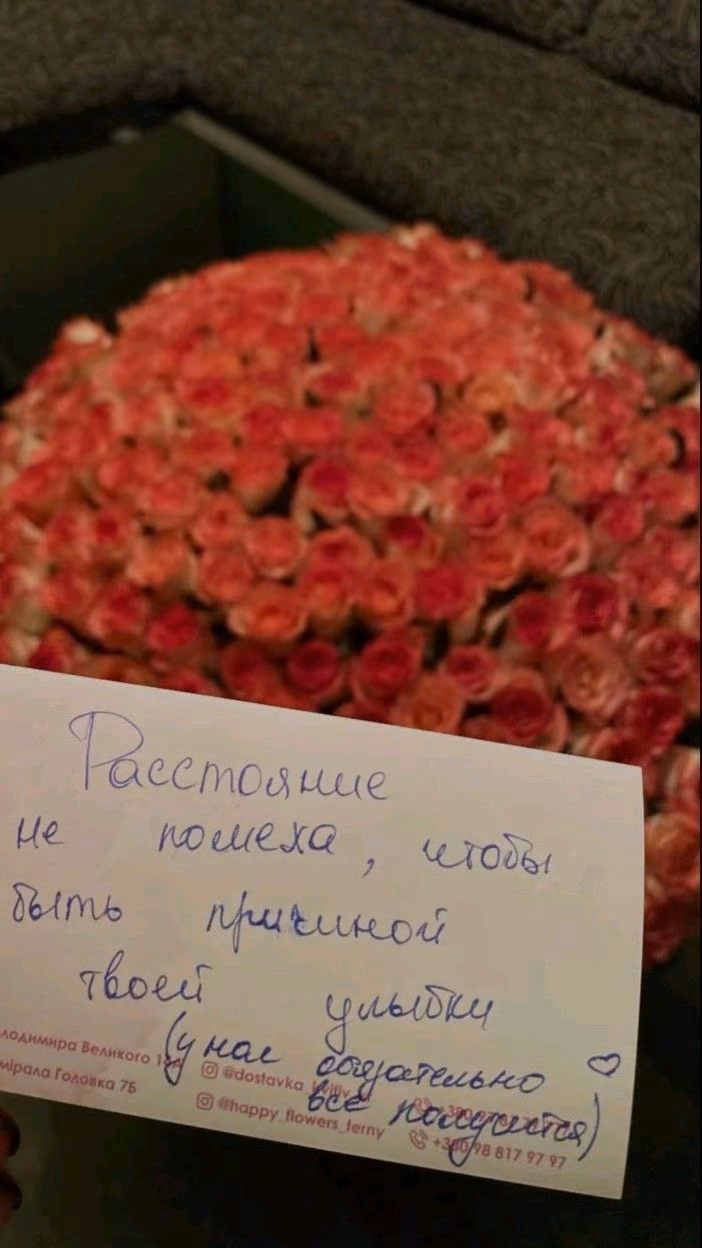 Расстояние
не помеха, чтобы
быть причиной
твоей улыбки
(у нас обязательно ♡
все получится)
лодимира Великого
мірала Головка 7Б
@dostavka
@happy_flowers_terny
98 817 97 97